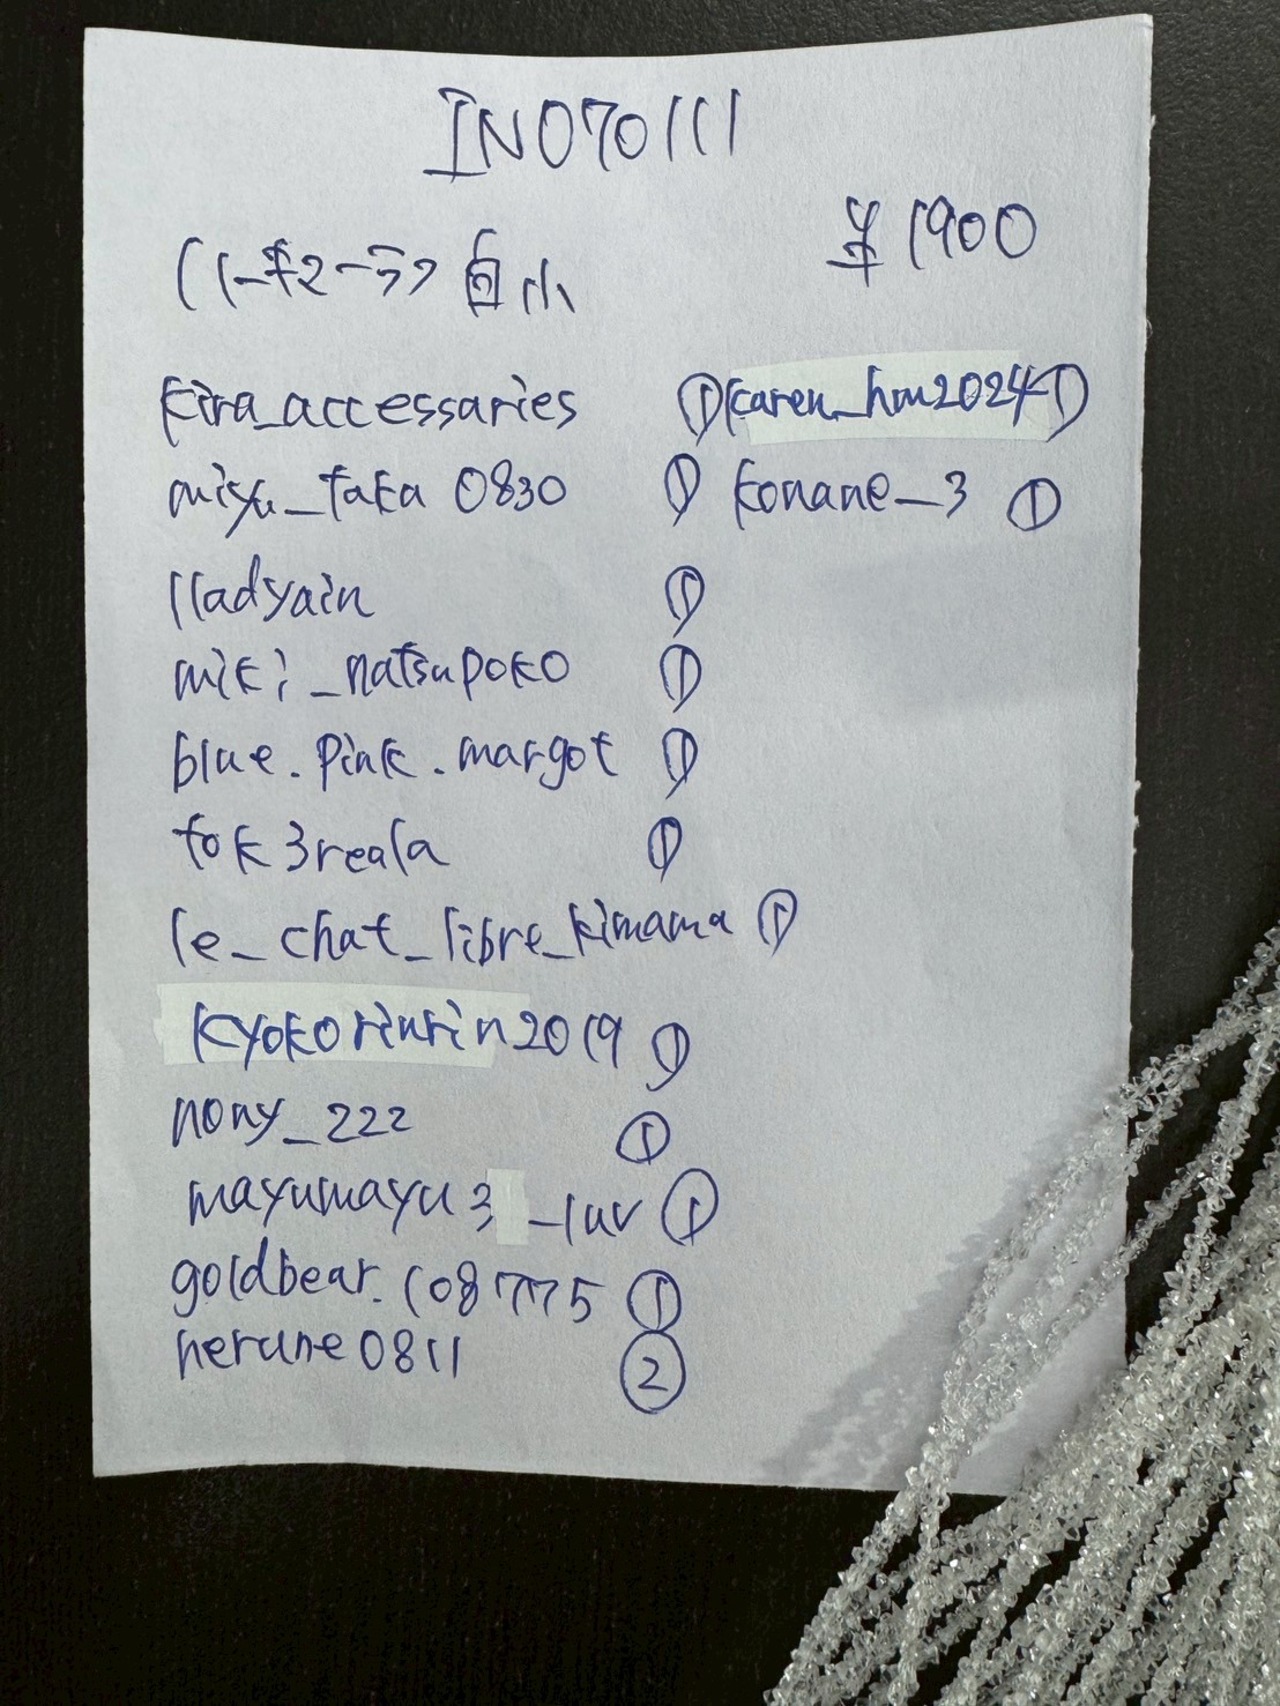 IN070111
¥1900
白 小
kira_accessaries ①
karen_hm2024 ①
miyu_taka 0830 ①
konane_3 ①
lladyain ①
miki_natsupoko ①
blue.pink.margot ①
tok3reala ①
le_chat_libre_kimama ①
kyokorinrin2019 ①
nony_222 ①
mayumayu3_luv ①
goldbear.108775 ①
nerune0811 ②